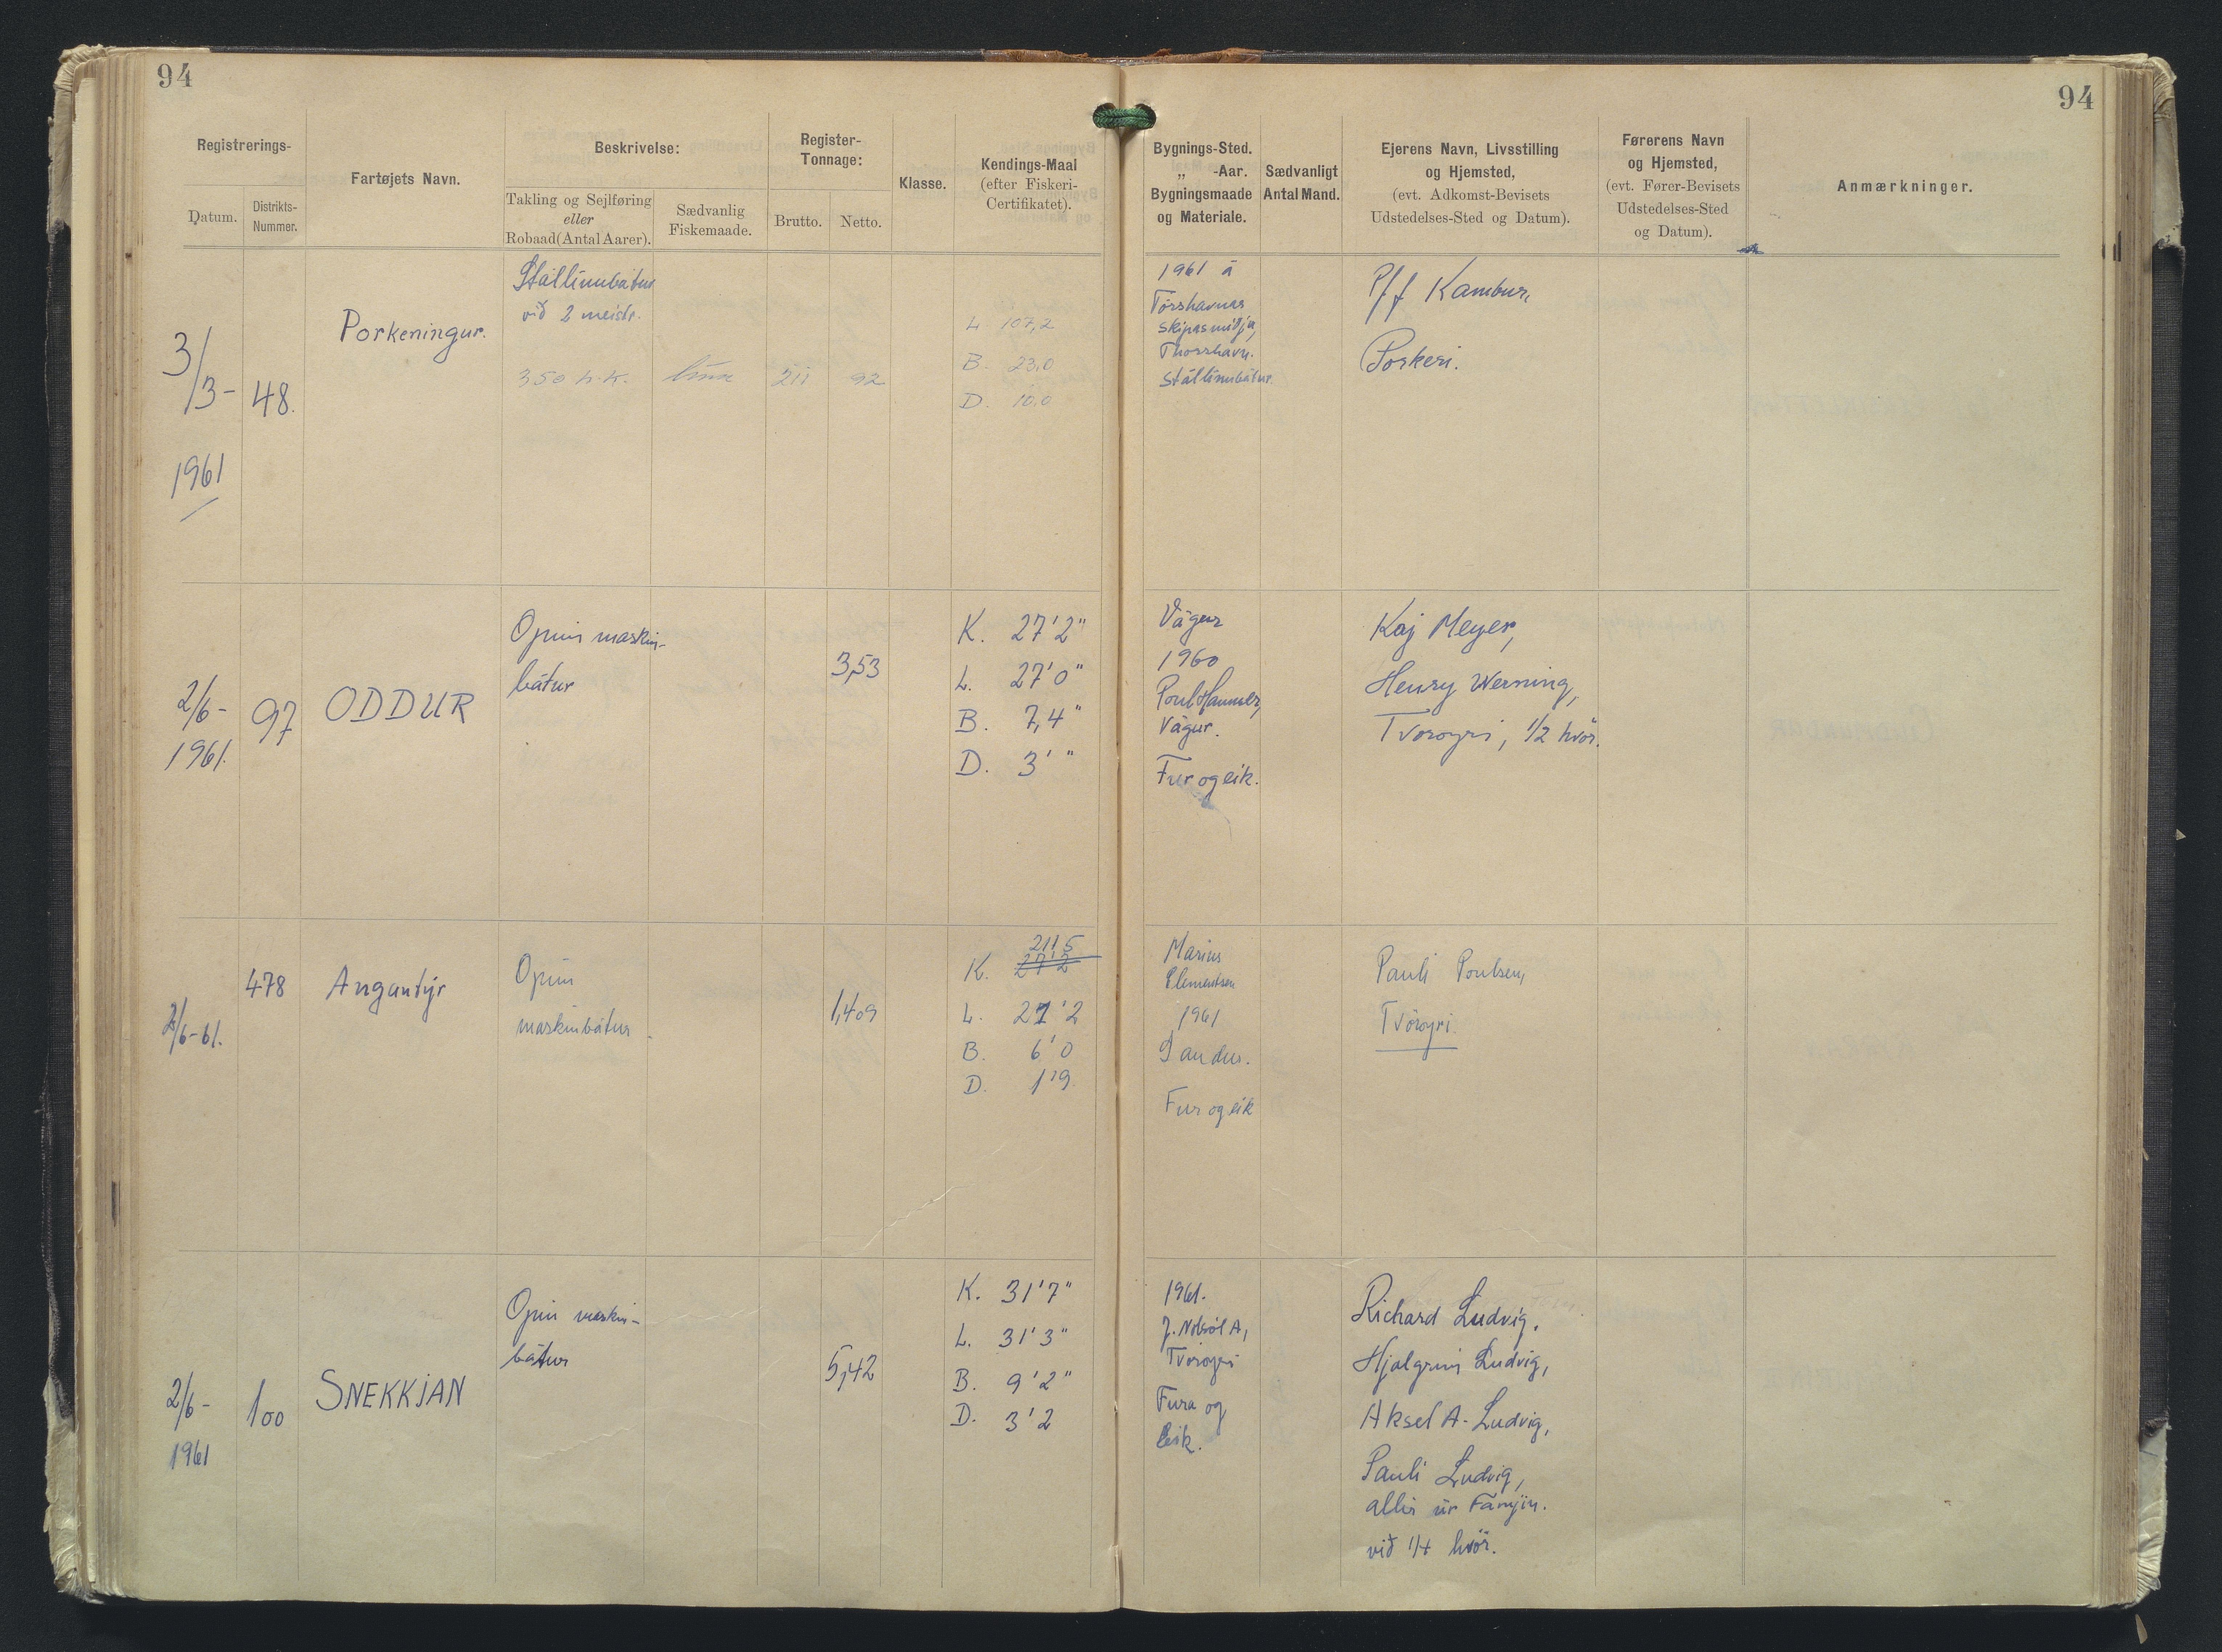 94
94
Registrerings-
Datum.
Distrikts-
Nummer.
Fartøjets Navn.
Beskrivelse:
Takling og Sejlføring
eller
Robaad (Antal Aarer).
Sædvanlig
Fiskemaade.
Register-
Tonnage:
Brutto.
Netto.
Klasse.
Kendings-Maal
(efter Fiskeri-
Certifikatet).
Bygnings-Sted.
„ -Aar.
Bygningsmaade
og Materiale.
Sædvanligt
Antal Mand.
Ejerens Navn, Livsstilling
og Hjemsted,
(evt. Adkomst-Bevisets
Udstedelses-Sted og Datum).
Førerens Navn
og Hjemsted,
(evt. Fører-Bevisets
Udstedelses-Sted
og Datum).
Anmærkninger.
3/3-
1961
48.
Porkeningur.
Stállinubátur
við 2 meistr.
350 h.k.
línu
211
92
L 107,2
B. 23,0
D. 10,0
1961 á
Tórshavnar
skipasmiðju,
Thorshavn.
Stállinubátur.
Pff Kambur,
Porkeri.
2/6-
1961.
97
ODDUR
Opin maskin-
bátur
3,53
K. 27'2"
L. 27'0"
B. 7,4"
D. 3' "
Vágur
1960
Poul Hammer,
Vágur.
Fur og eik.
Kaj Meyer,
Henry Werning,
Tvøroyri, 1/2 hvør.
2/6-61.
478
Angantýr
Opin
maskinbátur
1,409
21'5
K. 27'2
L. 21'2
B. 6'0
D. 1'9
Marius
Clementsen
1961
Sandur.
Fur og eik
Pauli Poulsen,
Tvøroyri.
2/6-
1961
100
SNEKKJAN
Opin maskin-
bátur
5,42
K. 31'7"
L. 31'3"
B. 9'2"
D. 3'2
1961.
J. Nolsøe A,
Tvøroyri
Fura og
Eik.
Richard Ludvig,
Hjalgrim Ludvig,
Aksel A. Ludvig,
Pauli Ludvig,
allir úr Fámjin.
við 1/4 hvør.